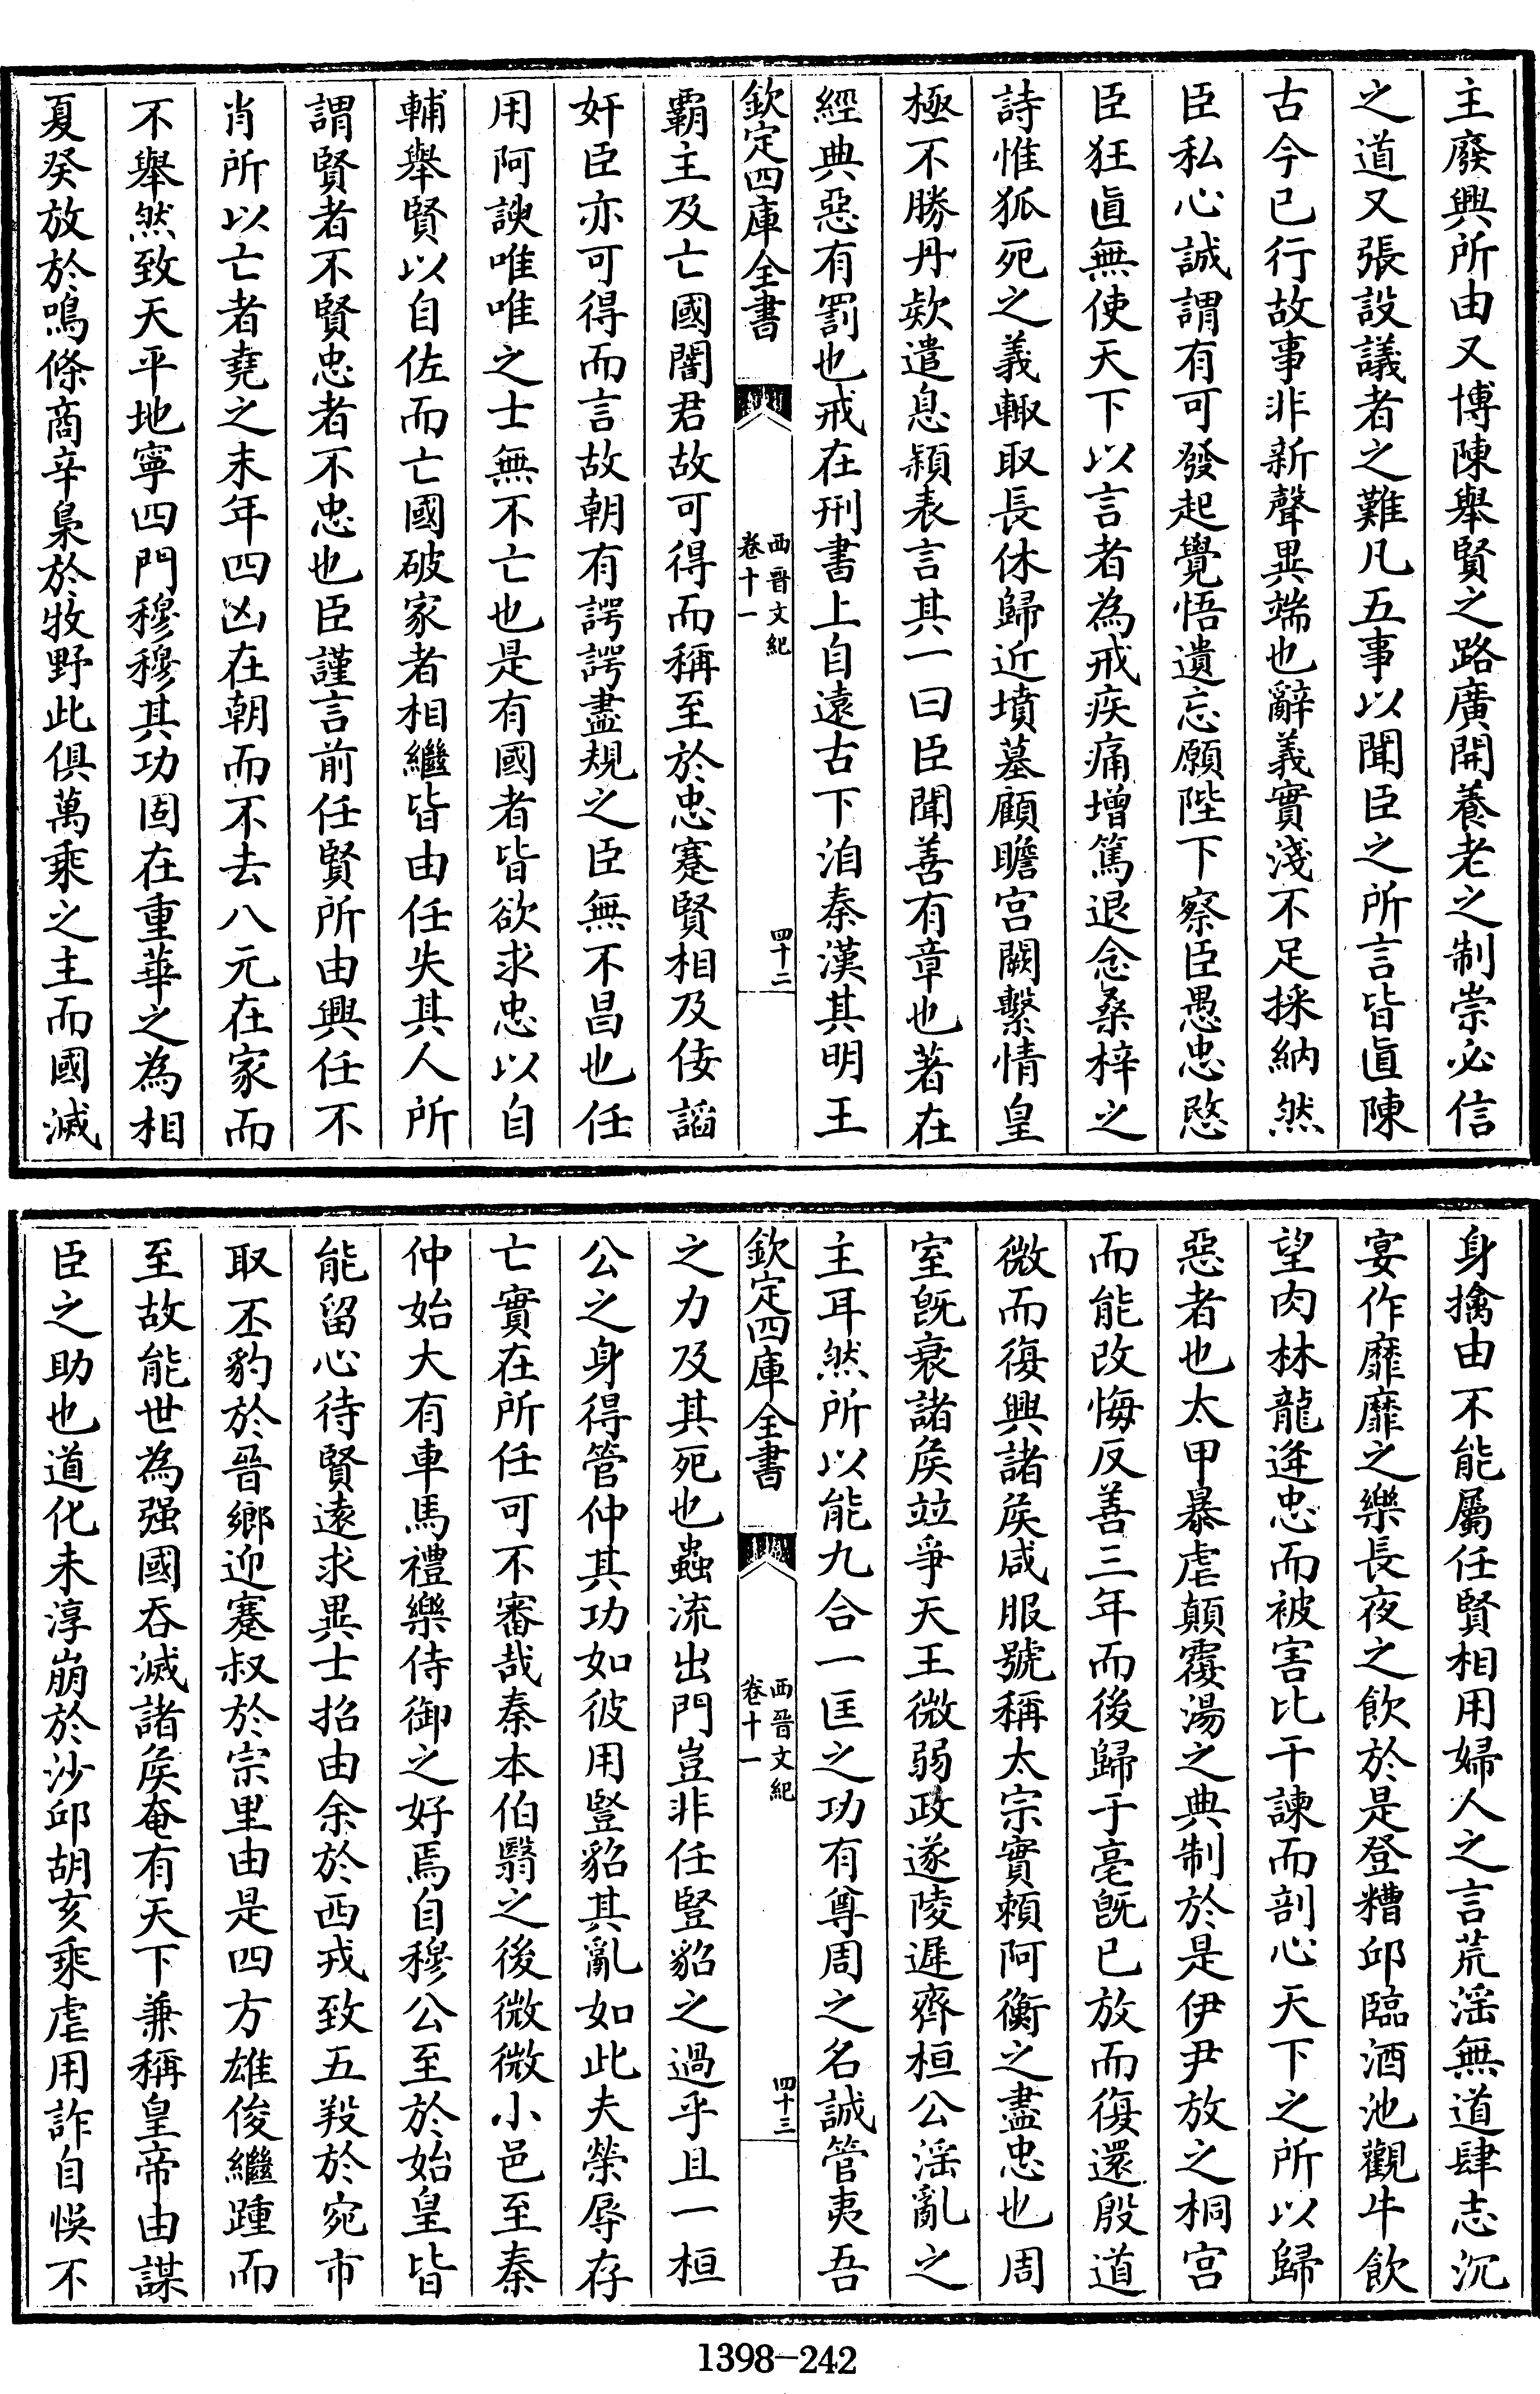 主廢興所由又博陳舉賢之路廣開養老之制崇必信
之道又張設議者之難凡五事以聞臣之所言皆直陳
古今已行故事非新聲異端也辭義實淺不足採納然
臣私心誠謂有可發起覺悟遺忘願陛下察臣愚忠愍
臣狂直無使天下以言者為戒疾痛增篤退念桑梓之
詩惟狐死之義輙取長休歸近墳墓顧瞻宫闕繫情皇
極不勝丹欵遣息穎表言其一曰臣聞善有章也著在
經典惡有罰也戒在刑書上自遠古下洎秦漢其明王
欽定四庫全書
西晉文紀
卷十一
四十二
霸主及亡國闇君故可得而稱至於忠蹇賢相及佞謟
奸臣亦可得而言故朝有諤諤盡規之臣無不昌也任
用阿諛唯唯之士無不亡也是有國者皆欲求忠以自
輔舉賢以自佐而亡國破家者相繼皆由任失其人所
謂賢者不賢忠者不忠也臣謹言前任賢所由興任不
肖所以亡者堯之末年四凶在朝而不去八元在家而
不舉然致天平地寧四門穆穆其功固在重華之為相
夏癸放於鳴條商辛梟於牧野此俱萬乘之主而國滅
身擒由不能屬任賢相用婦人之言荒滛無道肆志沉
宴作靡靡之樂長夜之飲於是登糟邱臨酒池觀牛飲
望肉林龍逄忠而被害比干諫而剖心天下之所以歸
惡者也太甲暴虐顛覆湯之典制於是伊尹放之桐宫
而能改悔反善三年而後歸于亳旣已放而復還殷道
微而復興諸矦咸服號稱太宗實賴阿衡之盡忠也周
室旣衰諸矦竝爭天王微弱政遂陵遲齊桓公滛亂之
主耳然所以能九合一匡之功有尊周之名誠管夷吾
欽定四庫全書
西晉文紀
卷十一
四十三
之力及其死也蟲流出門豈非任豎貂之過乎且一桓
公之身得管仲其功如彼用豎貂其亂如此夫榮辱存
亡實在所任可不審哉秦本伯翳之後微微小邑至秦
仲始大有車馬禮樂侍御之好焉自穆公至於始皇皆
能留心待賢遠求異士招由余於西戎致五羖於宛市
取丕豹於晉鄉迎蹇叔於宗里由是四方雄俊繼踵而
至故能世為强國吞滅諸矦奄有天下兼稱皇帝由謀
臣之助也道化未淳崩於沙邱胡亥乘虐用詐自悞不
1398-242